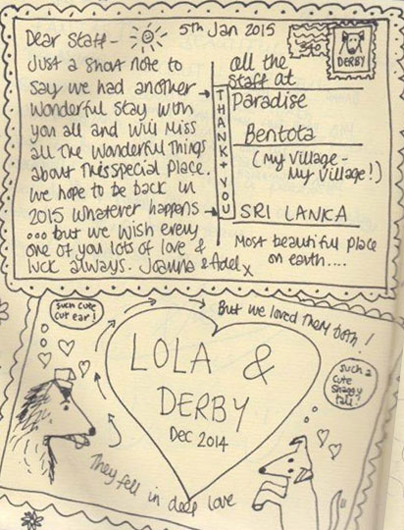 5th Jan 2015
Dear Staff -
Just a short note to
say we had another
wonderful stay with
you all and will miss
all the wonderful things
about this special place.
We hope to be back in
2015 whatever happens
... but we wish every
one of you lots of love &
luck always. Joanna & Adel x
THANK + YOU
DERBY
all the
Staff at
Paradise
Bentota
(My Village -
My Village!)
SRI LANKA
Most beautiful place
on earth....
such cute
cut ear!
But we loved them both!
LOLA &
DERBY
Dec 2014
such a
cute
shaggy
tail!
They fell in deep love